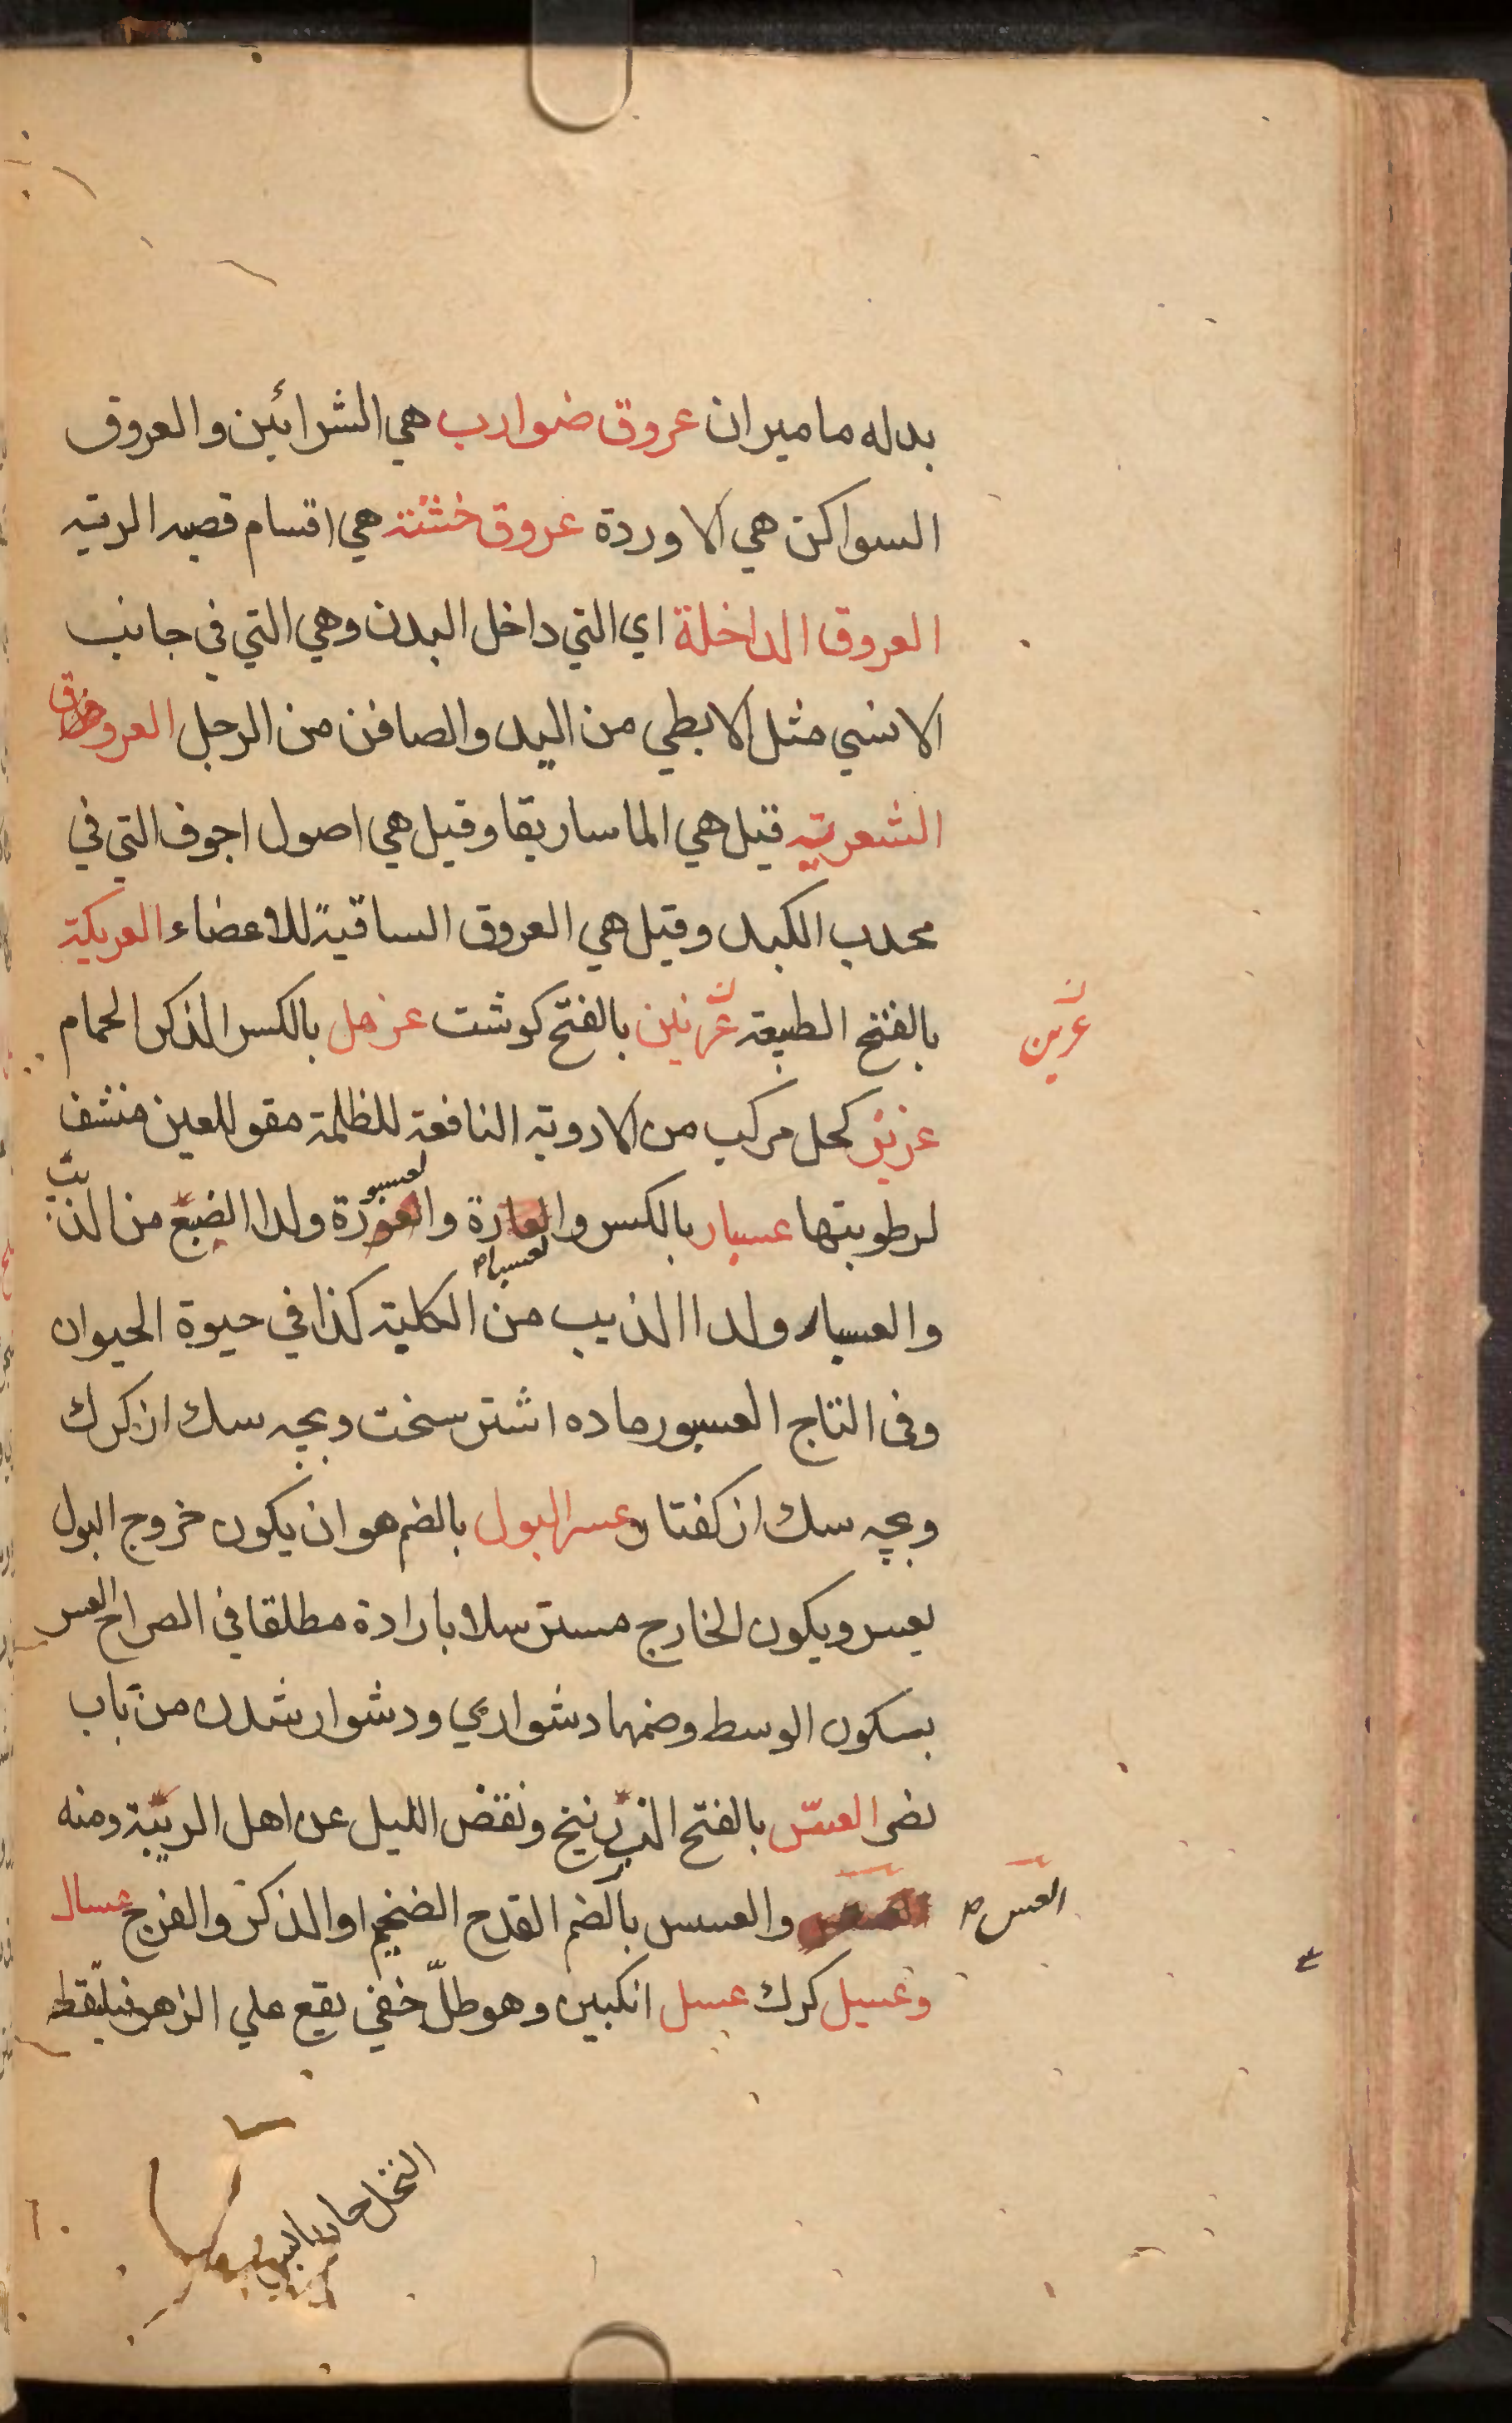 بدله ماميران عروق ضوارب هي الشرائين والعروق
السواكن هي الاوردة عروق خشنة هي اقسام قصبه الريه
العروق الداخلة اي التي داخل البدن وهي التي في جانب
الانسي مثل الابطي من اليد والصافن من الرجل العروق
الشعريه قيل هي الماساريقا وقيل هي اصول اجوف التي في
محدب الكبد وقيل هي العروق الساقية للاعضاء العريكة
بالفتح الطبيعة عرنين بالفتح كوشت عزهل بالكسر الذكر الحمام
عرين
عزيز كحل مركب من الادوية النافعة للظلمة مقو للعين منشف
لرطوبتها عسبار بالكسر والعسبارة والعسبورة ولد الضبع من الذئب
والعسبار ولدا الذيب من الكلبة كذا في حيوة الحيوان
وفى التاج العسبور ماده اشتر سخت وبچه سك از كرك
وبچه سك از كفتار عسر البول بالضم هو ان يكون خروج البول
بعسر ويكون الخارج مسترسلا بارادة مطلقا في الصراح العسر
بسكون الوسط وضمها دشواري ودشوار شدن من باب
نصر العسّ بالفتح الذرنيخ ونقض الليل عن اهل الريبة ومنه
العسس
والعسس بالضم القدح الضخم او الذكر والفرج عسال
وعسيل كرك عسل انكبين وهو طلّ خفي يقع علي الزهر فيلقطه
النحل